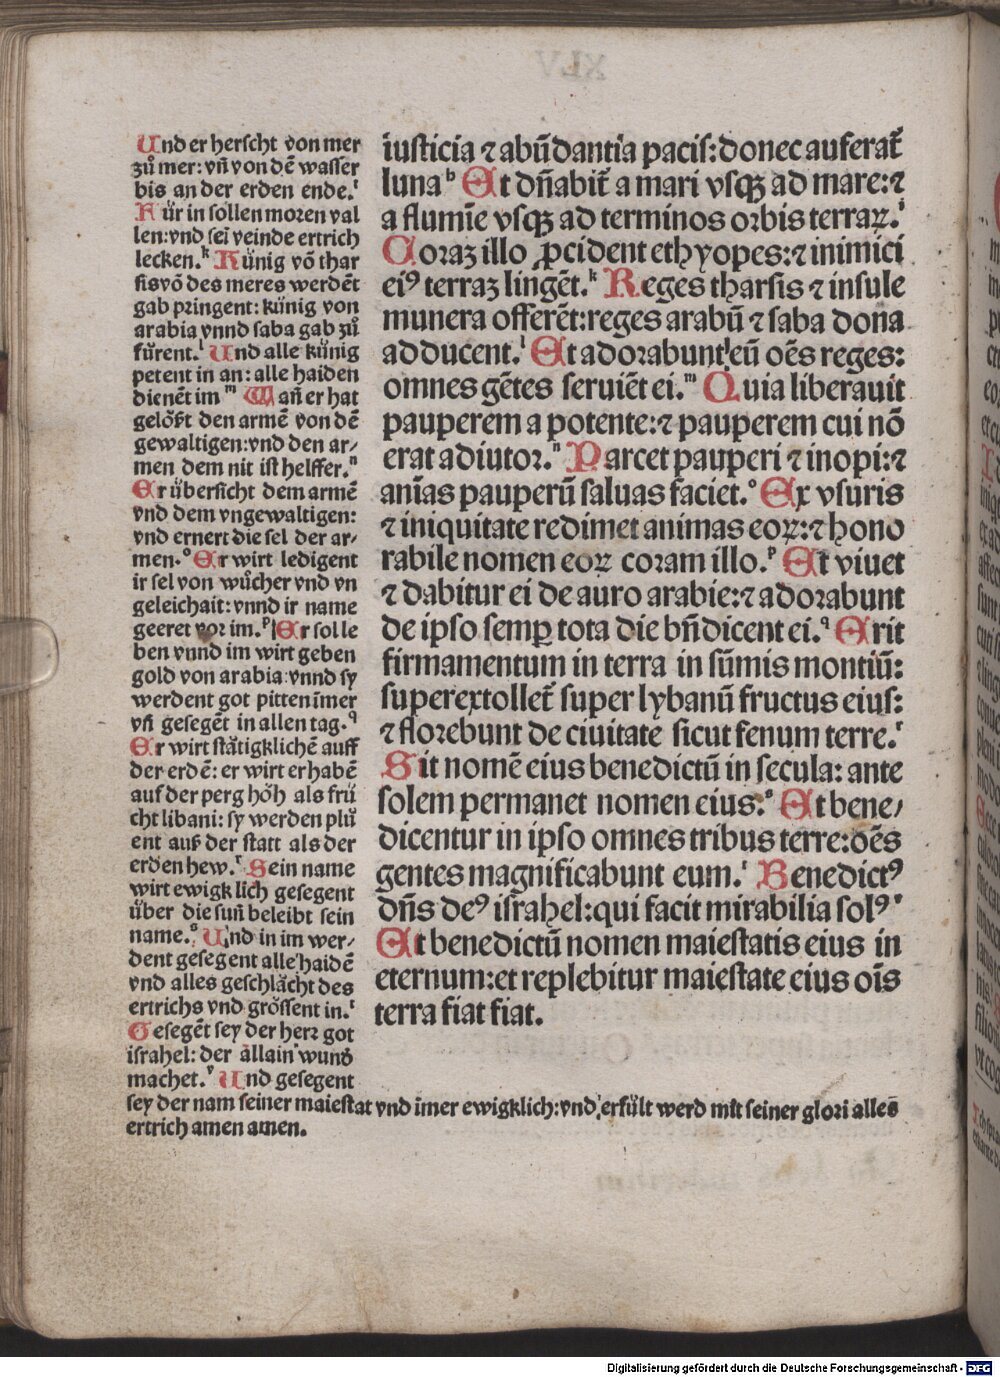 Und er herscht von mer
zů mer: vñ von dē wasser
bis an der erden ende.ⁱ
Für in sollen moren val
len: vnd sei veinde ertrich
lecken.ᵏ Künig vō thar
sis vō des meres werdēt
gab pringent: künig von
arabia vnnd saba gab zů
fürent.ˡ Und alle künig
petent in an: alle haiden
dienēt im ᵐ Wañ er hat
gelößt den armē von dē
gewaltigen: vnd den ar⸗
men dem nit ist helffer.ⁿ
Er übersicht dem armē
vnd dem vngewaltigen:
vnd ernert die sel der ar⸗
men.ᵒ Er wirt ledigent
ir sel von wůcher vnd vn
geleichait: vnnd ir name
geeret vor im.ᵖ Er sol le
ben vnnd im wirt geben
gold von arabia vnnd sy
werdent got pitten īmer
vñ gesegēt in allen tag.ᑫ
Er wirt stätigklichē auff
der erdē: er wirt erhabē
auf der perg höh als frü
cht libani: sy werden plü
ent auß der statt als der
erden hew.ʳ Sein name
wirt ewigklich gesegent
über die suñ beleibt sein
name.ˢ Und in im wer⸗
dent gesegent alle haidē
vnd alles geschlächt des
ertrichs vnd grössent in.ᵗ
Gesegēt sey der herr got
israhel: der allain wund̄
machet.ᵛ Und gesegent
sey der nam seiner maiestat vnd īmer ewigklich: vnd erfült werd mit seiner glori alles
ertrich amen amen.
iusticia ⁊ abūdantia pacis: donec auferat̄
luna ʰ Et dn̄abit̄ a mari vsqꝫ ad mare: ⁊
a flumīe vsqꝫ ad terminos orbis terraꝝ.ⁱ
Coraꝫ illo ꝓcident ethyopes: ⁊ inimici
eiꝰ terraꝫ lingēt.ᵏ Reges tharsis ⁊ insule
munera offerēt: reges arabū ⁊ saba dona
adducent.ˡ Et adorabunt eū oēs reges:
omnes gētes seruiēt ei.ᵐ Quia liberauit
pauperem a potente: ⁊ pauperem cui nō
erat adiutor.ⁿ Parcet pauperi ⁊ inopi: ⁊
anīas pauperū saluas faciet.ᵒ Ex vsuris
⁊ iniquitate redimet animas eoꝝ: ⁊ hono
rabile nomen eoꝝ coram illo.ᵖ Et viuet
⁊ dabitur ei de auro arabie: ⁊ adorabunt
de ipso semꝑ tota die bn̄dicent ei.ᑫ Erit
firmamentum in terra in sūmis montiū:
superextollet̄ super lybanū fructus eius:
⁊ florebunt de ciuitate sicut fenum terre.ʳ
Sit nomē eius benedictū in secula: ante
solem permanet nomen eius.ˢ Et bene⸗
dicentur in ipso omnes tribus terre: oēs
gentes magnificabunt eum.ᵗ Benedictꝰ
dn̄s deꝰ israhel: qui facit mirabilia solꝰ ᵛ
Et benedictū nomen maiestatis eius in
eternum: et replebitur maiestate eius oīs
terra fiat fiat.
Digitalisierung gefördert durch die Deutsche Forschungsgemeinschaft - DFG